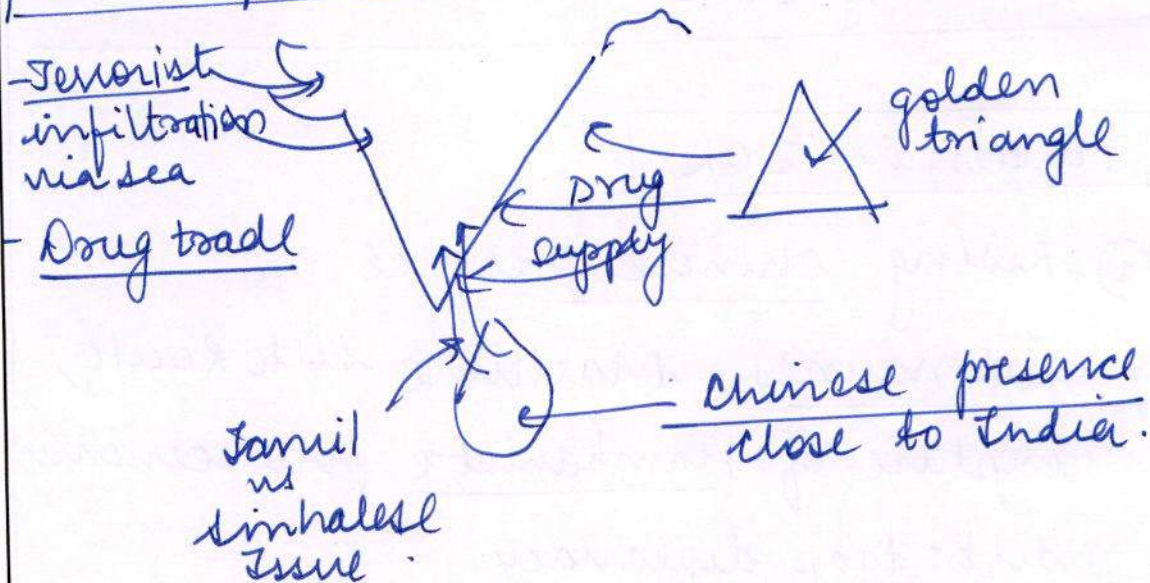 - Terrorist
infiltration
via sea
- Drug trade
golden
triangle
Drug
supply
Chinese presence
close to India.
Tamil
vs
Sinhalese
Issue.